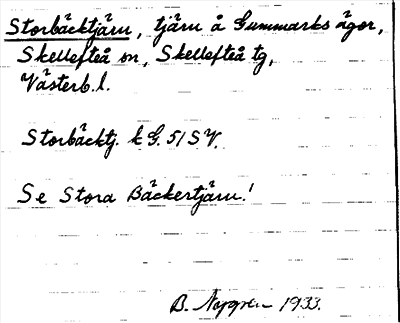 Storbäcktjärn, tjärn å Gummarks ägor,
Skellefteå sn, Skellefteå tg,
Västerb.l.
Storbäcktj. k G. 51 SV.
Se Stora Bäckertjärn!
B. Nygren 1933.